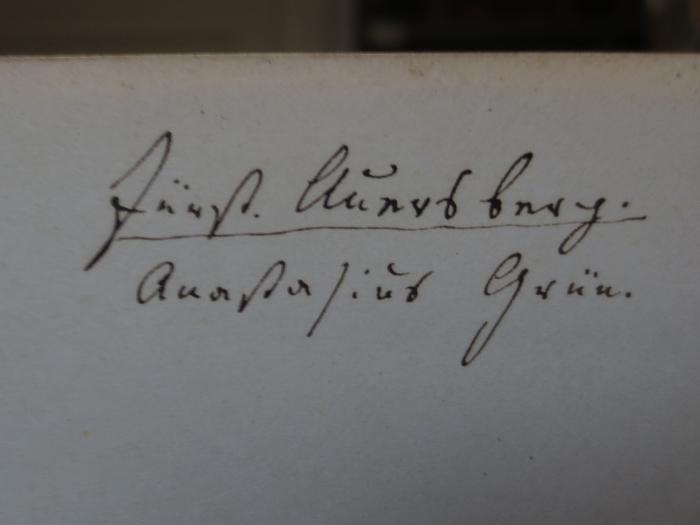 Fürst. Auersberg.
Anastasius Grün.